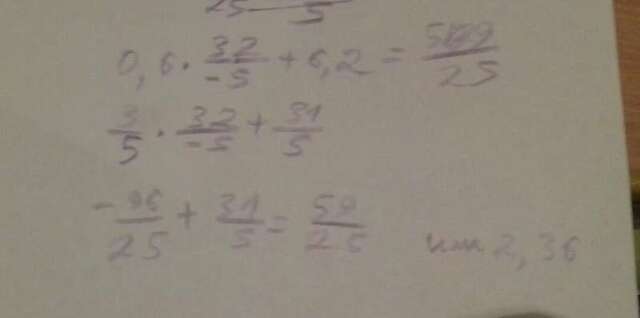 25 5
0,6 · 32/-5 + 6,2 = 59/25
3/5 · 32/-5 + 31/5
-96/25 + 31/5 = 59/25 или 2,36